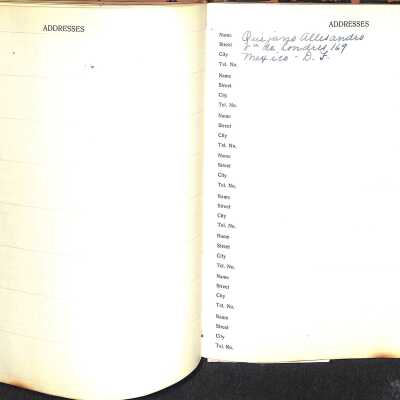 ADDRESSES
ADDRESSES
Name Quijano Allesandro
Street 8ª de Londres 169
City Mexico - D. F.
Tel. No.
Name
Street
City
Tel. No.
Name
Street
City
Tel. No.
Name
Street
City
Tel. No.
Name
Street
City
Tel. No.
Name
Street
City
Tel. No.
Name
Street
City
Tel. No.
Name
Street
City
Tel. No.